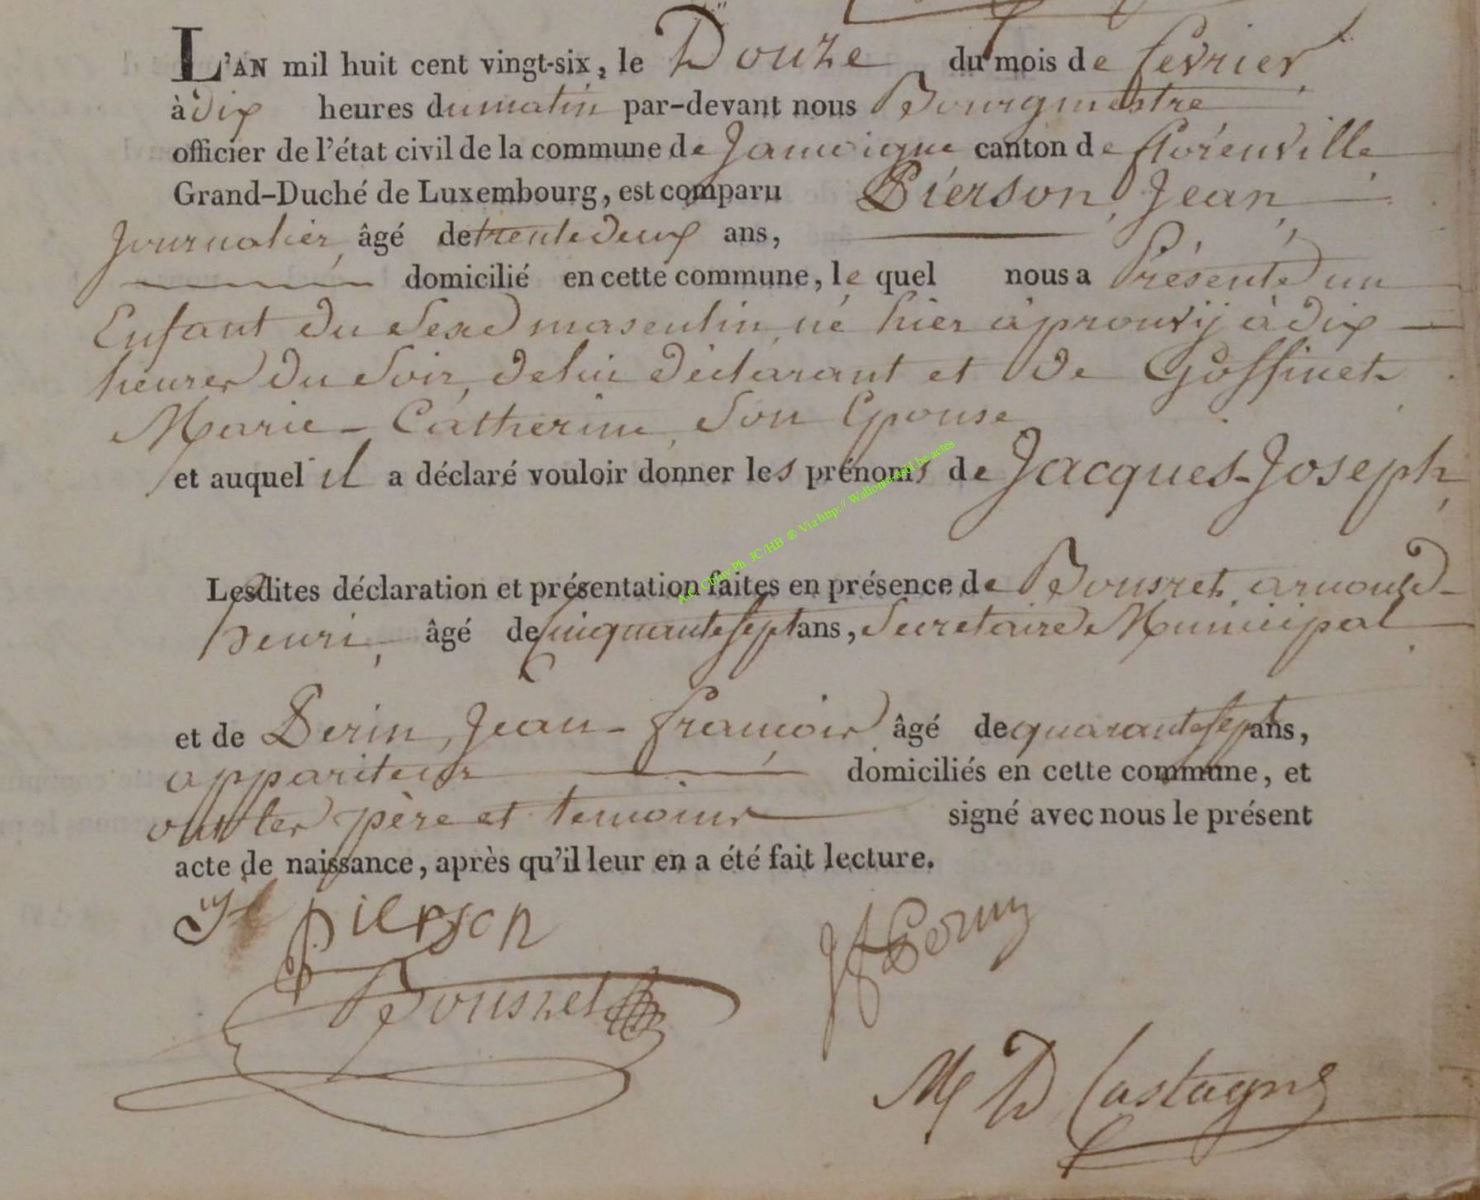 L'AN mil huit cent vingt-six, le Douze du mois de fevrier
à dix heures du matin par-devant nous Bourgmestre
officier de l'état civil de la commune de Jamoigne canton de florenville
Grand-Duché de Luxembourg, est comparu Pierson, Jean,
Journalier, âgé de trente deux ans,
domicilié en cette commune, le quel nous a Présenté un
Enfant du Sexe masculin, né hier à prouvÿ à dix
heures du Soir, de lui déclarant et de Goffinet
Marie-Catherine, Son Epouse
et auquel il a déclaré vouloir donner les prénoms de Jacques-Joseph,
Lesdites déclaration et présentation faites en présence de Bousret, arnould-
henri, âgé de Cinquante sept ans, Secretaire Municipal
et de Perin, Jean-françois âgé de quarante sept ans,
appariteur domiciliés en cette commune, et
ont les père et temoins signé avec nous le présent
acte de naissance, après qu'il leur en a été fait lecture.
pierson
JfPerin
Bousret
M D Castagne